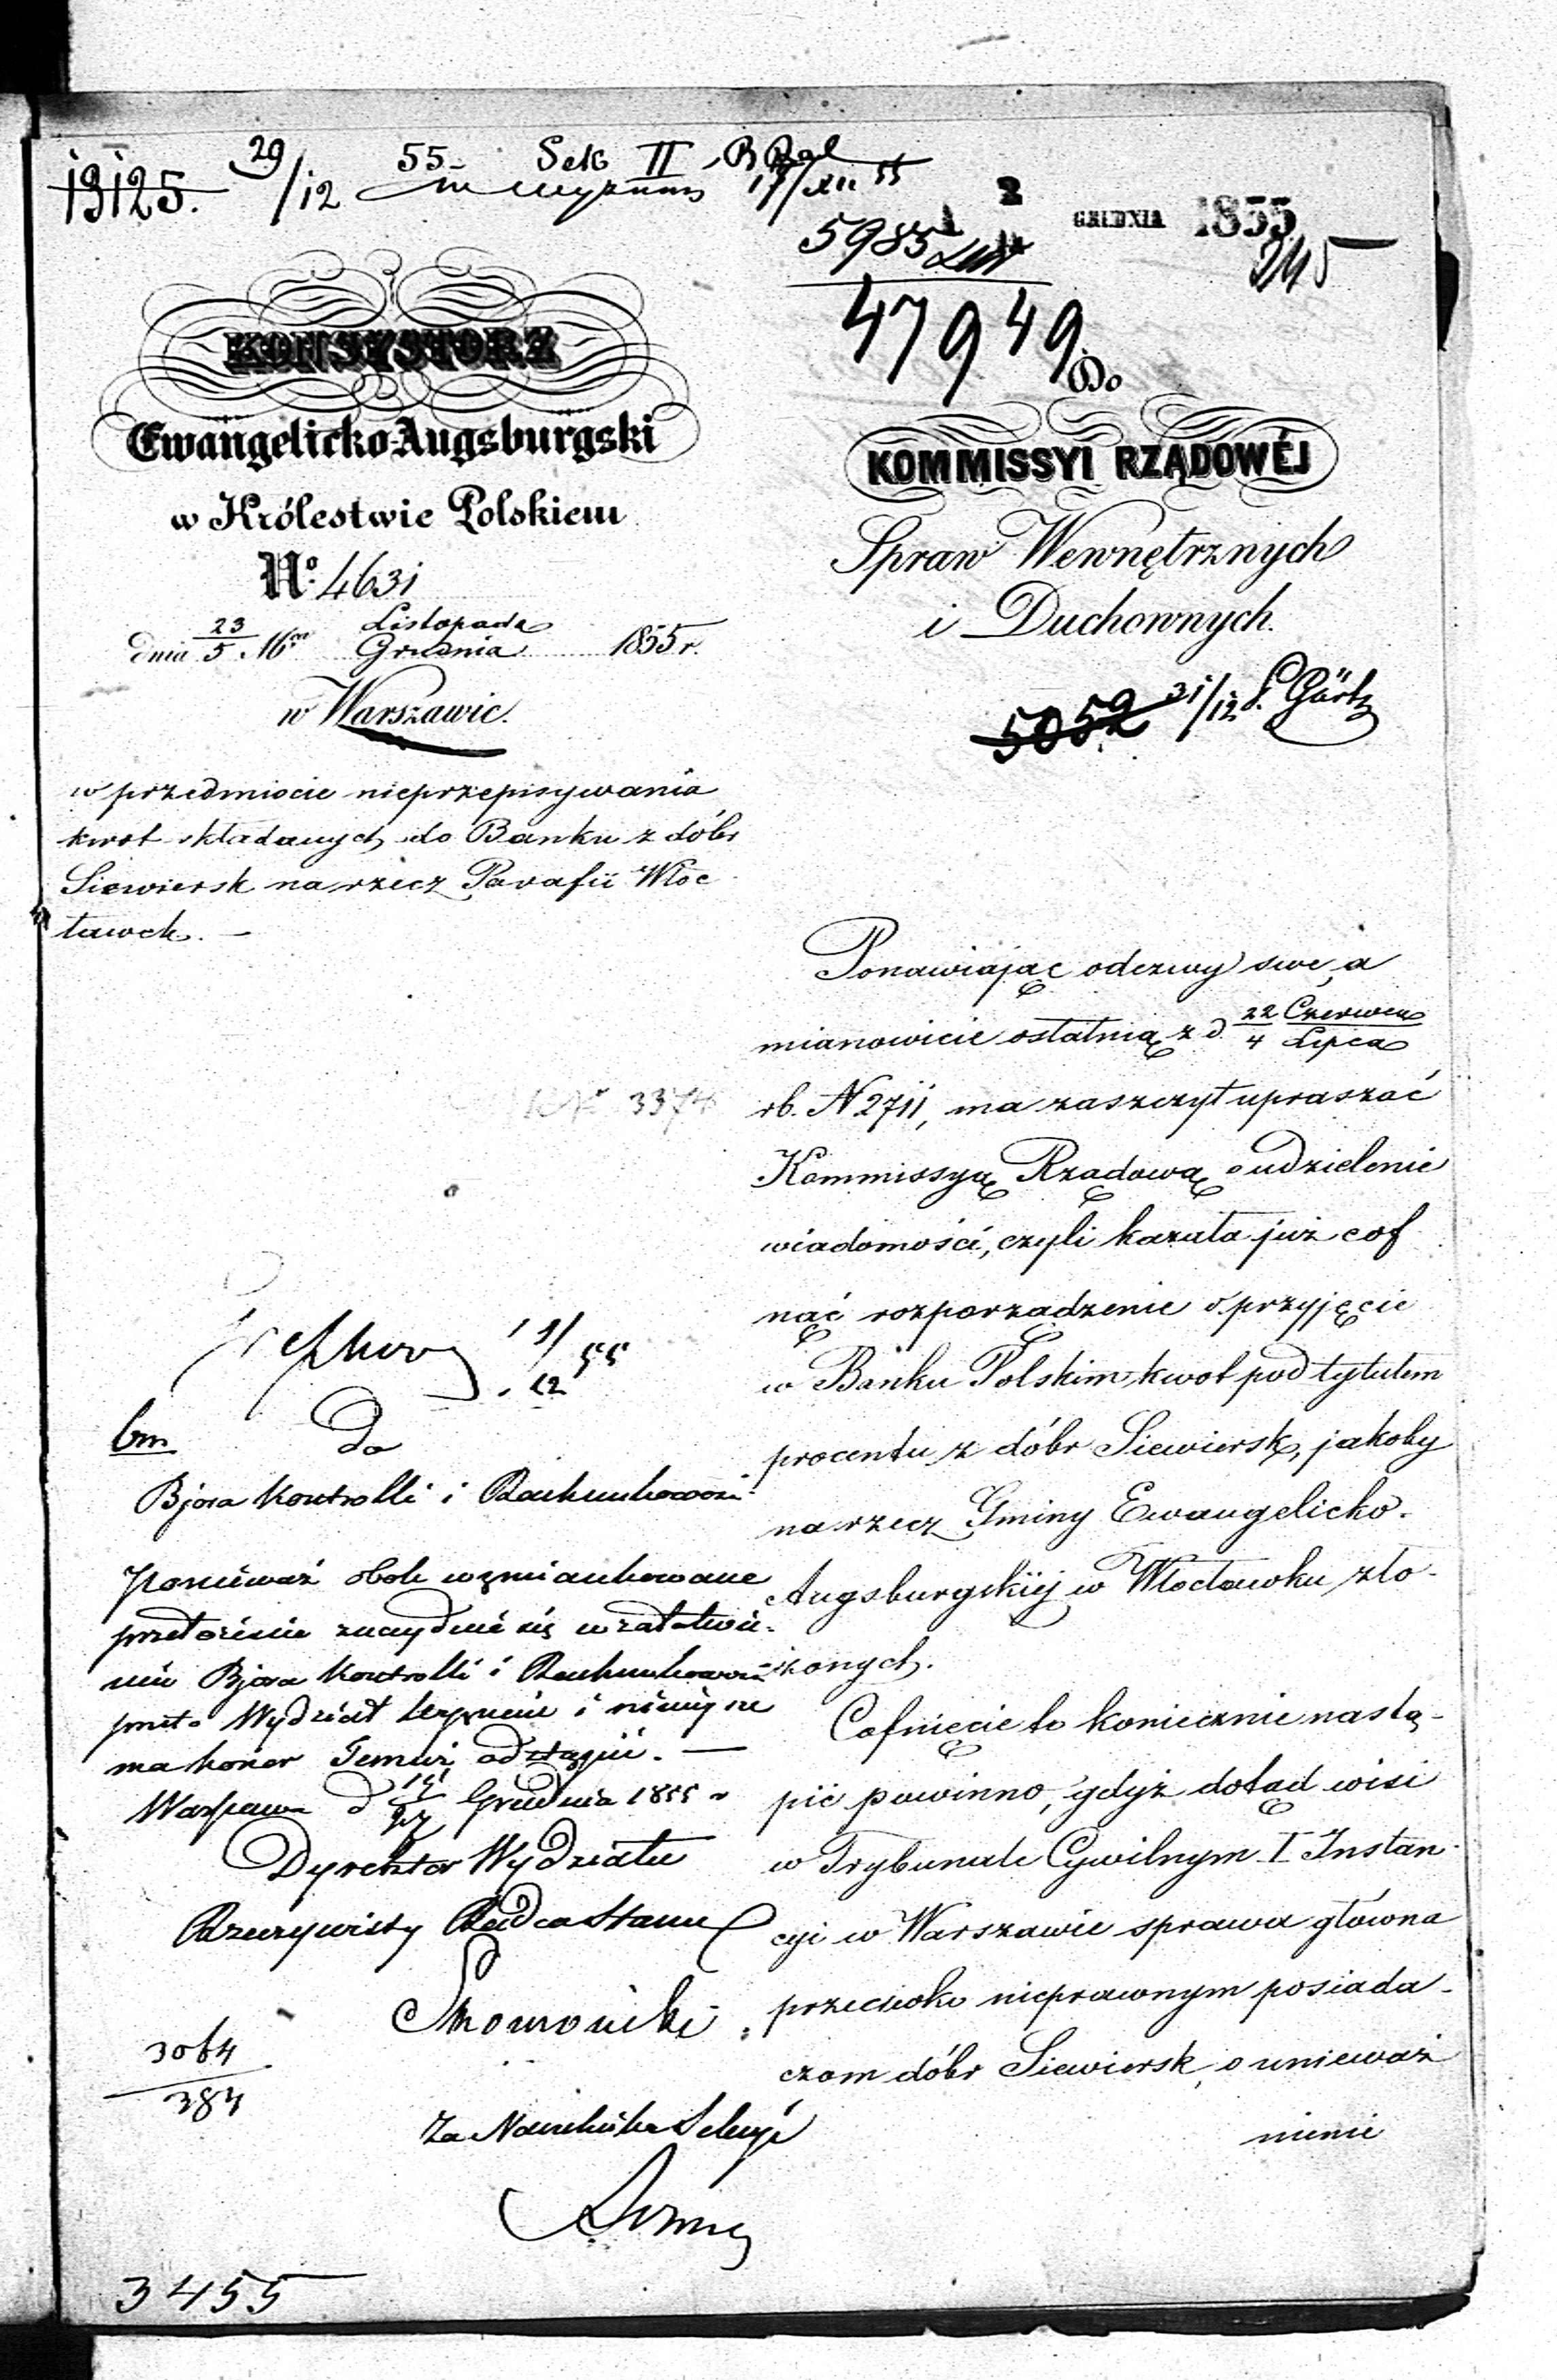 19125. 29/12 55 Sek II
17/XII 55
2 GRUDNIA 1855
5985
245
47949
KONSYSTORZ
Ewangelicko-Augsburgski
w Królestwie Polskiem
Nº 4631
dnia 23/5 Mca Listopada/Grudnia 1855 r.
w Warszawie.
w przedmiocie nieprzepisywania
kwot składanych do Banku z dóbr
Siewiersk na rzecz Parafii Włoc
ławek. —
Do
KOMMISSYI RZĄDOWÉJ
Spraw Wewnętrznych
i Duchownych.
5052 31/12 Görtz
Ponawiając odezwy swe, a
mianowicie ostatnią z d. 22 Czerwca/4 Lipca
rb. N 2711, ma zaszczyt upraszać
Kommissyą Rządową o udzielenie
wiadomości, czyli kazała już cof
nąć rozporządzenie o przyjęcie
w Banku Polskim kwot pod tytułem
procentu z dóbr Siewiersk, jakoby
na rzecz Gminy Ewangelicko-
Augsburgskiej w Włocławku zło-
żonych.
Cofnięcie to koniecznie nastą-
pić powinno, gdyż dotąd wisi
w Trybunale Cywilnym I Instan-
cyi w Warszawie sprawa główna
przeciwko nieprawnym posiada-
czom dóbr Siewiersk, o unieważ
nienie
3374
19/12 55
bm Do
Bjóra Kontrolli i Rachunkowości
Ponieważ obok wzmiankowane
przełożenie znajduje się w załatwie-
niu Bjóra Kontrolli i Rachunkowości
przeto Wydział i niniejsze
ma honor Temuż odstąpić. —
Warszawa d Grudnia 1855 r
Dyrektor Wydziału
Rzeczywisty Radca Stanu
3064
384
Za Naczelnika Sekcyi
3455